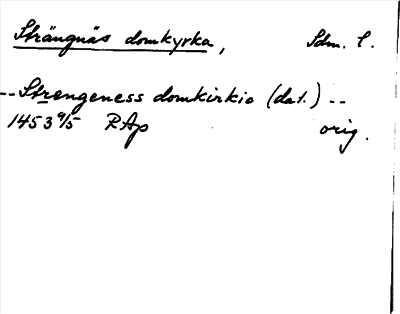 Strängnäs domkyrka, Sdm. l.
-- Strengeness domkirkio (dat.) --
1453 9/5 RAp orig.